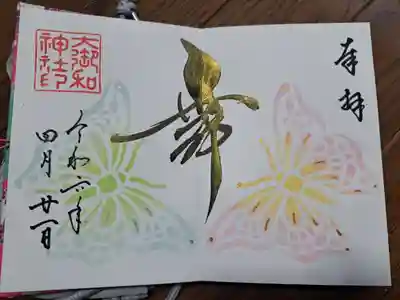 奉拝
舞
大御和
神社印
令和六年
四月廿一日